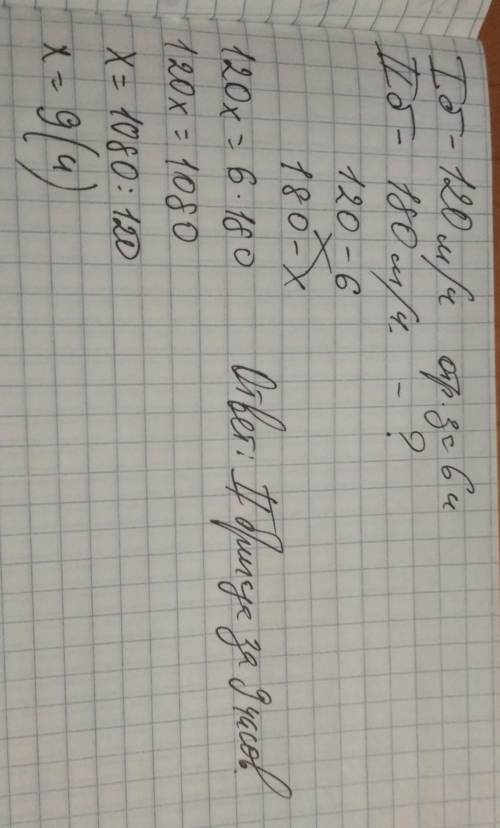 I б - 120 м/ч отр. за 6 ч
II б - 180 м/ч. - ?
120 - 6
180 - x
120x = 6·180
120x = 1080
x = 1080 : 120
x = 9 (ч)
Ответ: II бригада за 9 часов.